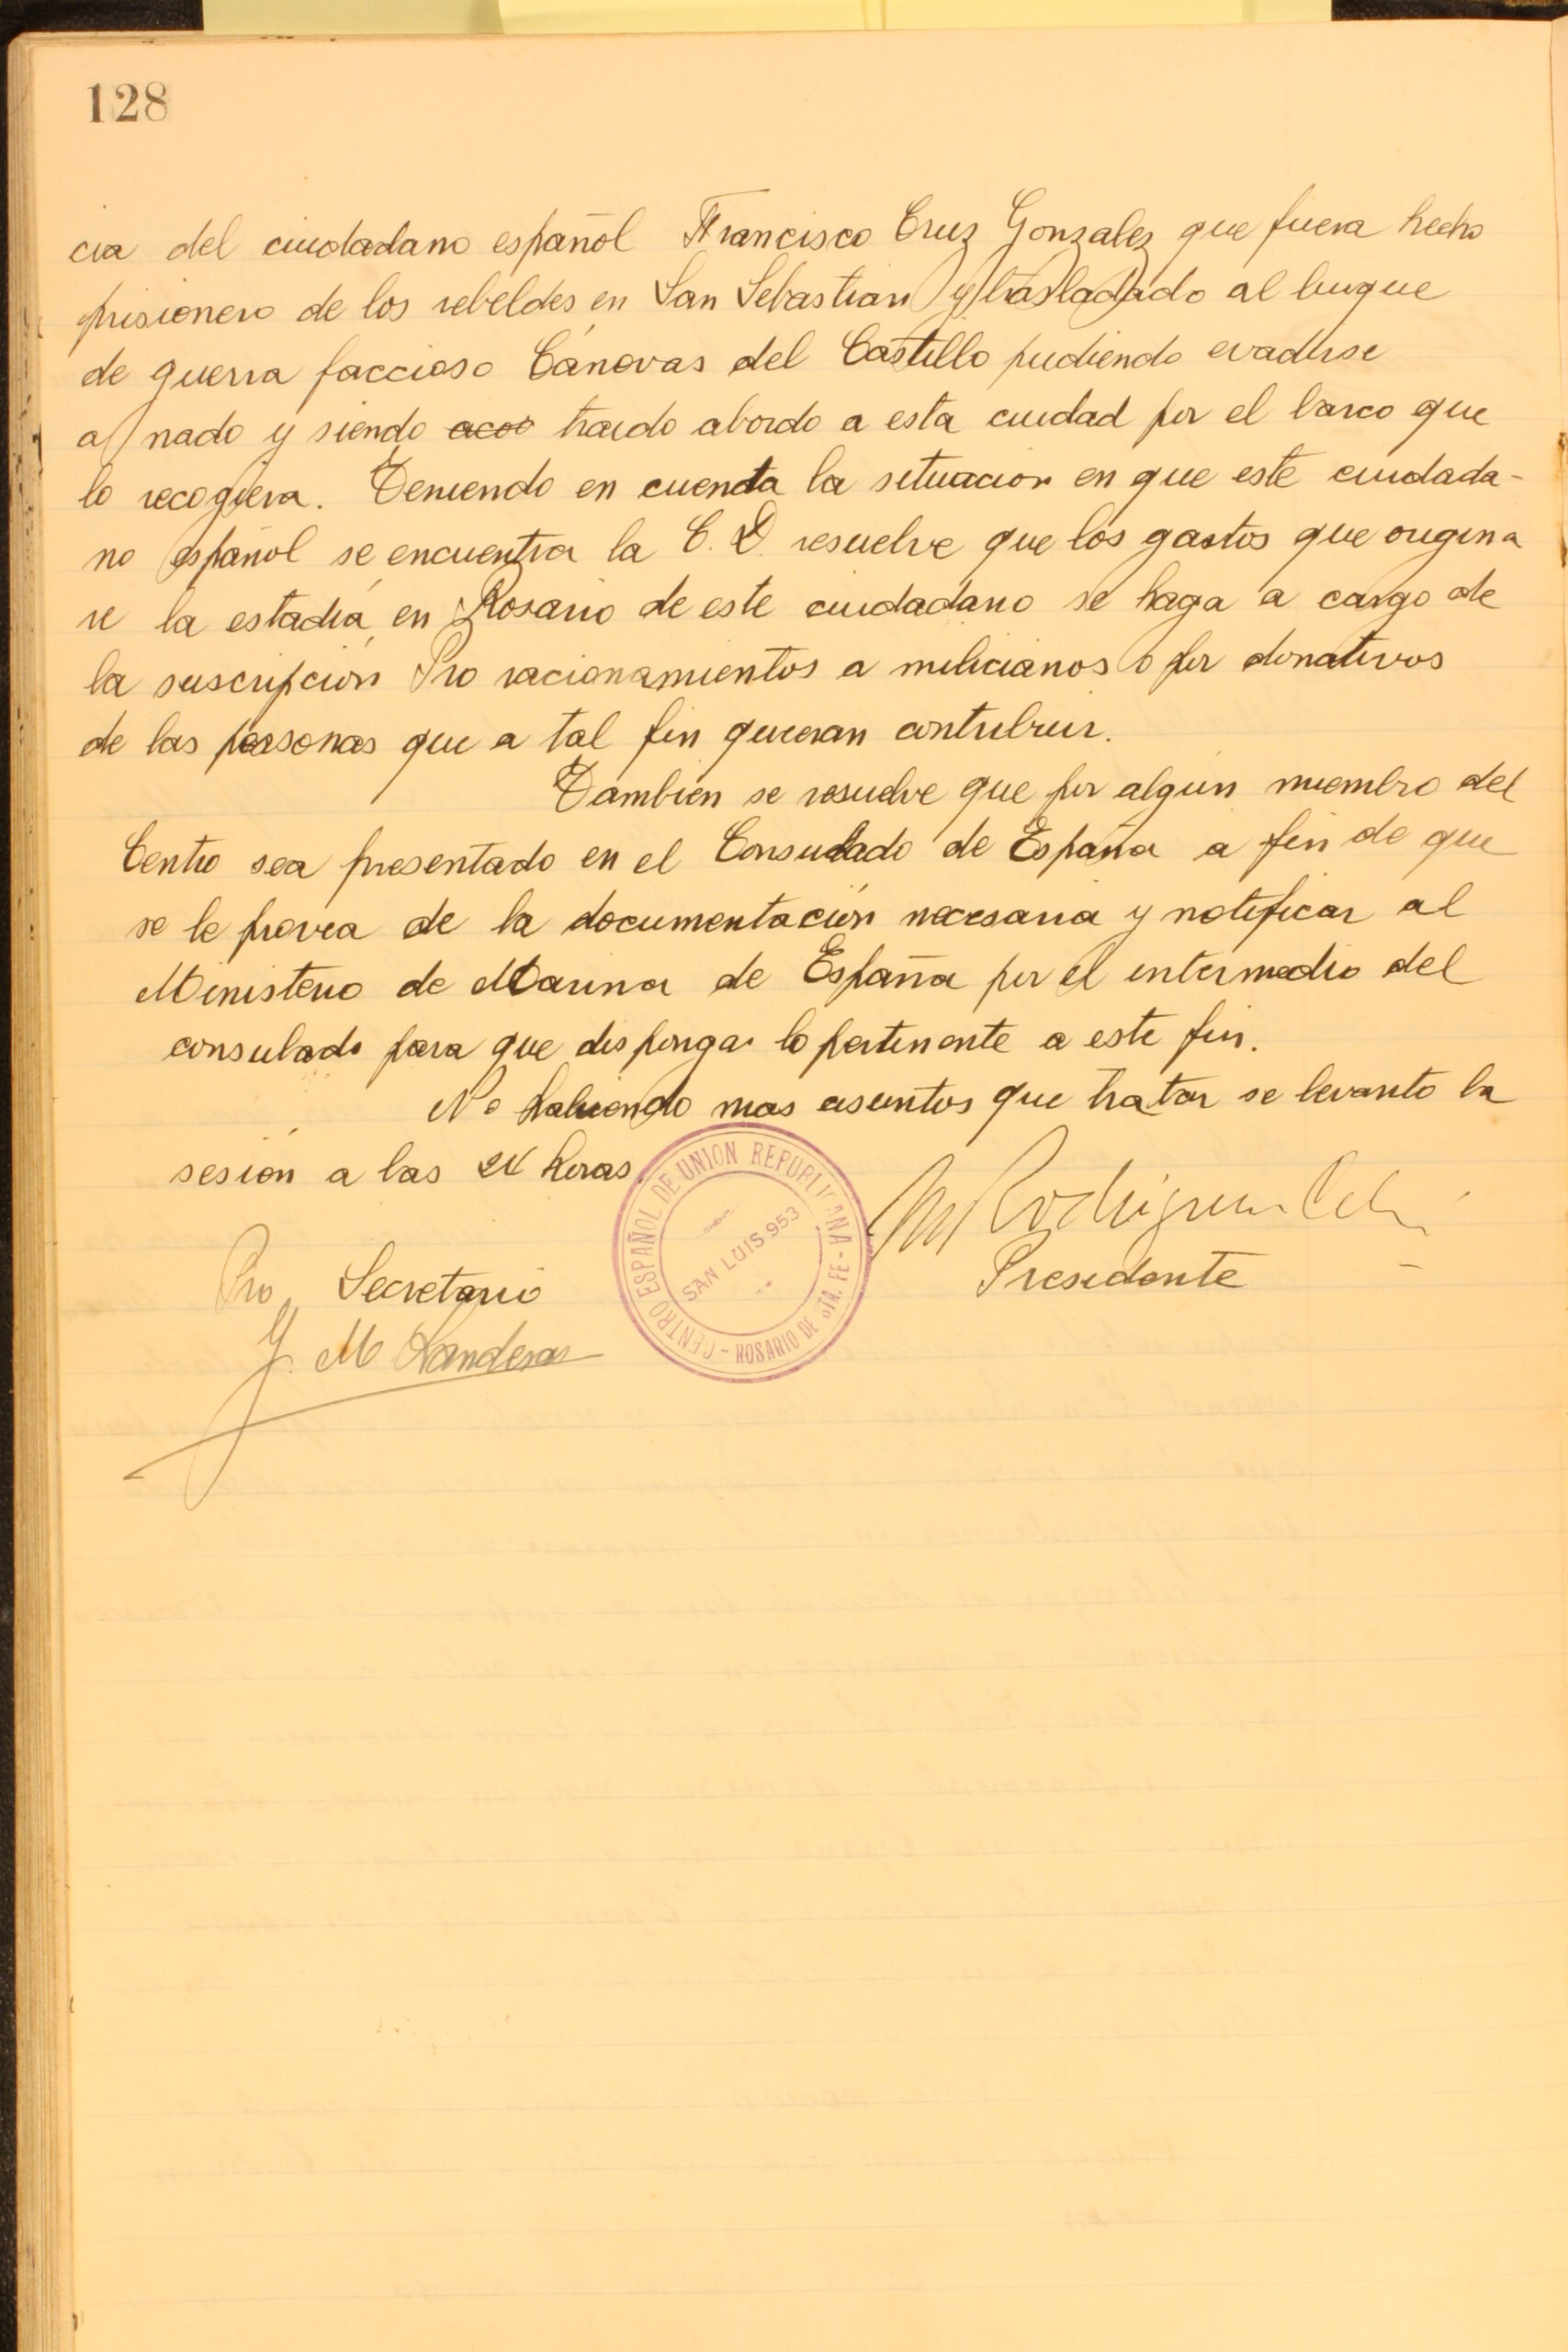 128
cia del ciudadano español Francisco Cruz Gonzalez que fuera hecho
prisionero de los rebeldes en San Sebastian y trasladado al buque
de guerra faccioso Cánovas del Castillo pudiendo evadirse
a nado y siendo acoo traido abordo a esta ciudad por el barco que
lo recogiera. Teniendo en cuenta la situacion en que este ciudada-
no español se encuentra la C. D. resuelve que los gastos que origina
re la estadia en Rosario de este ciudadano se haga a cargo de
la suscripción Pro racionamientos a milicianos o por donativos
de las personas que a tal fin quieran contribuir.
Tambien se resuelve que por algun miembro del
Centro sea presentado en el Consulado de España a fin de que
se le provea de la documentación necesaria y notificar al
Ministerio de Marina de España por el intermedio del
consulado para que disponga lo pertinente a este fin.
No habiendo mas asuntos que tratar se levanto la
sesión a las 24 horas
CENTRO ESPAÑOL DE UNION REPUBLICANA - ROSARIO DE STA. FE -
SAN LUIS 953
M Rodriguez
Presidente
Pro Secretario
J. M Landeras